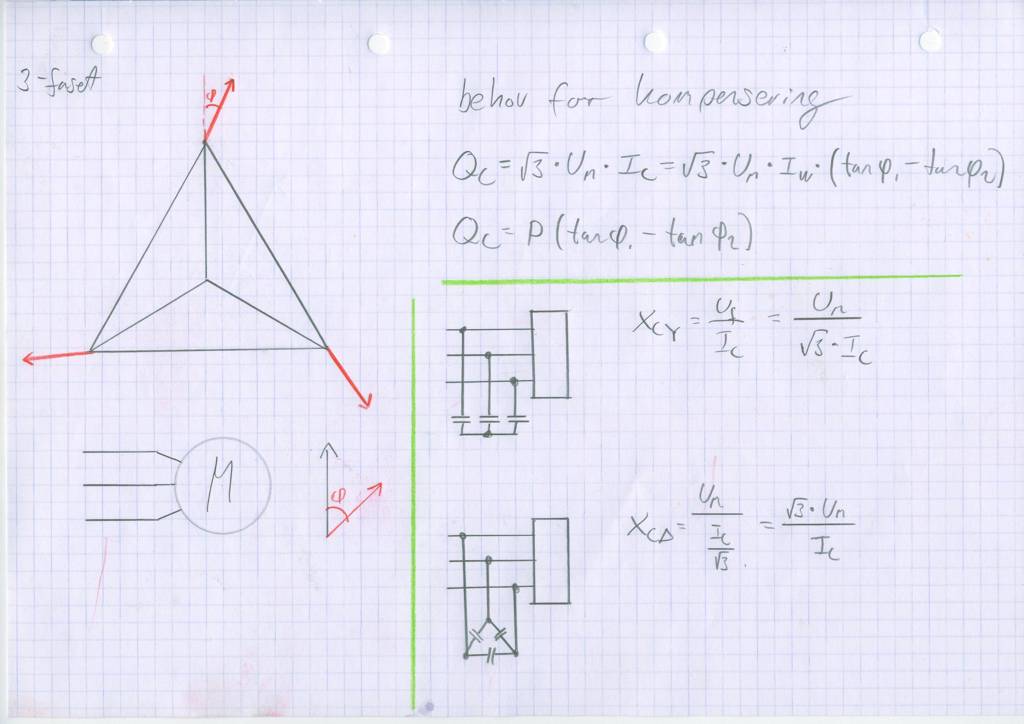 3-faset
φ
behov for kompensering
Q_C = √3 · U_n · I_C = √3 · U_n · I_w · (tan φ₁ - tan φ₂)
Q_C = P (tan φ₁ - tan φ₂)
X_CY = U_f / I_C = U_n / (√3 · I_C)
M
φ
X_CΔ = U_n / (I_C / √3) = √3 · U_n / I_C